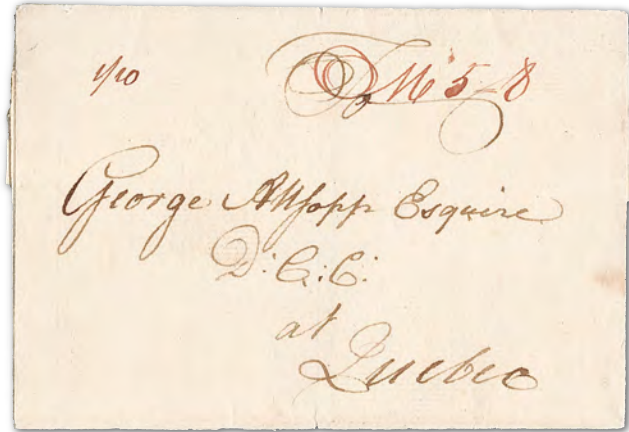 1/10 M 5-8
George Allsopp Esquire
D: C: C:
at
Quebec